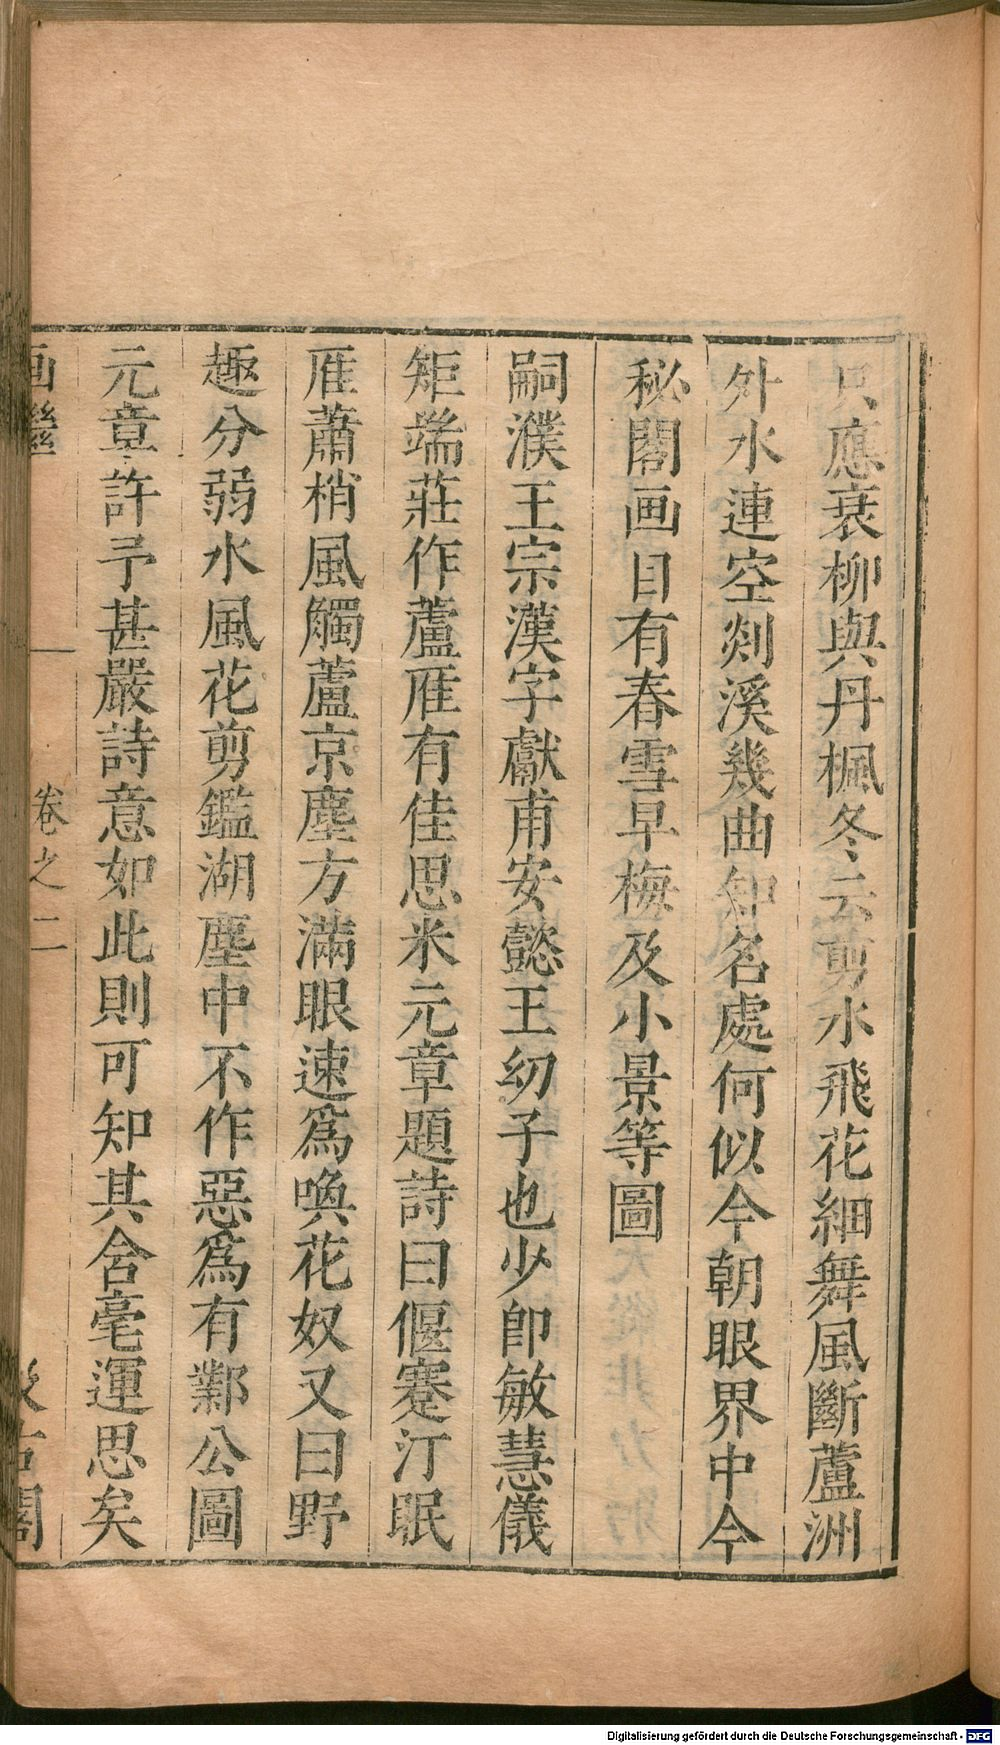 只應衰柳與丹楓冬云剪水飛花細舞風斷蘆洲
外水連空剡溪幾曲知名處何似今朝眼界中今
秘閣画目有春雪早梅及小景等圖
嗣濮王宗漢字獻甫安懿王幼子也少卽敏慧儀
矩端莊作蘆雁有佳思米元章題詩曰偃蹇汀眠
雁蕭梢風觸蘆京塵方滿眼速爲喚花奴又曰野
趣分弱水風花剪鑑湖塵中不作惡爲有鄴公圖
元章許予甚嚴詩意如此則可知其含毫運思矣
画繼 卷之二 汲古閣
Digitalisierung gefördert durch die Deutsche Forschungsgemeinschaft - DFG